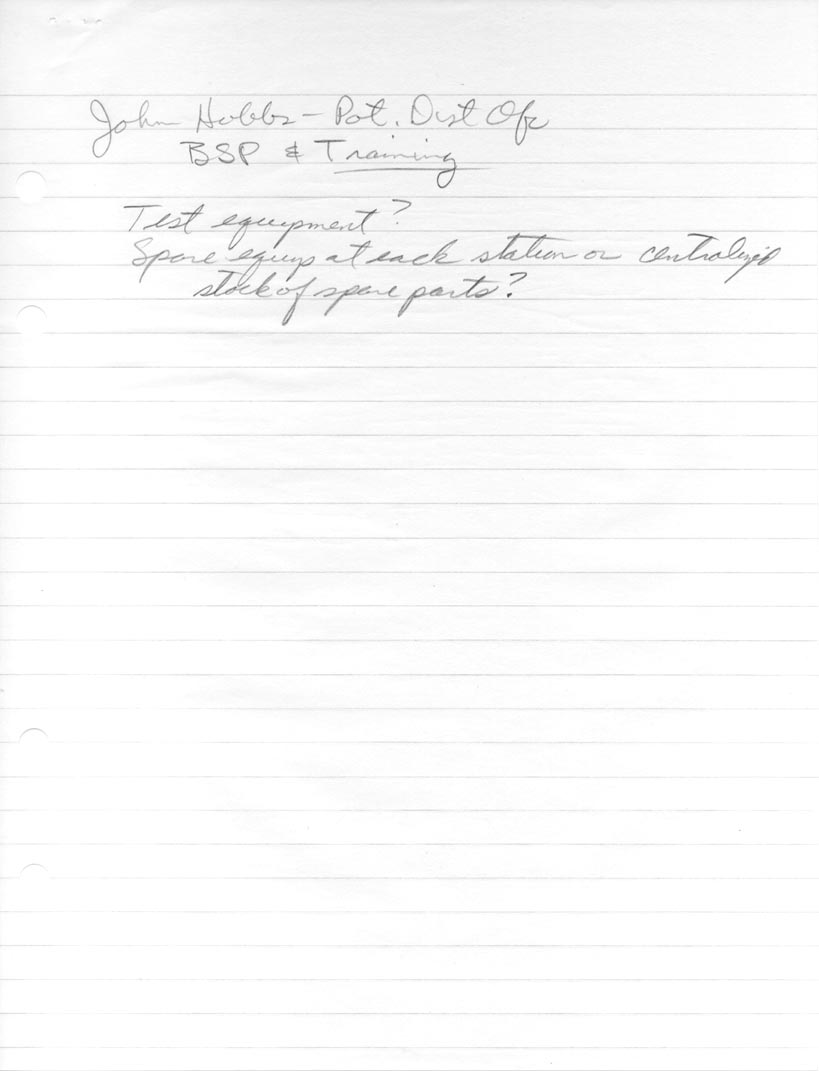 John Hobbs - Pot. Dist Ofc
BSP & Training
Test equipment?
Spare equip at each station or centralized
stock of spare parts?